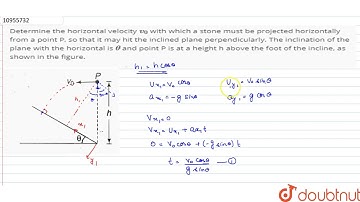 10955732
Determine the horizontal velocity v₀ with which a stone must be projected horizontally
from a point P, so that it may hit the inclined plane perpendicularly. The inclination of the
plane with the horizontal is θ and point P is at a height h above the foot of the incline, as
shown in the figure.
v₀ P
h
θ
x₁
y₁
h₁ = h cosθ
Ux₁ = v₀ cosθ Uy₁ = v₀ sinθ
ax₁ = -g sinθ ay₁ = g cosθ
Vx₁ = 0
Vx₁ = Ux₁ + ax₁t
0 = v₀ cosθ + (-g sinθ) t
t = v₀ cosθ / g sinθ — ①
doubtnut